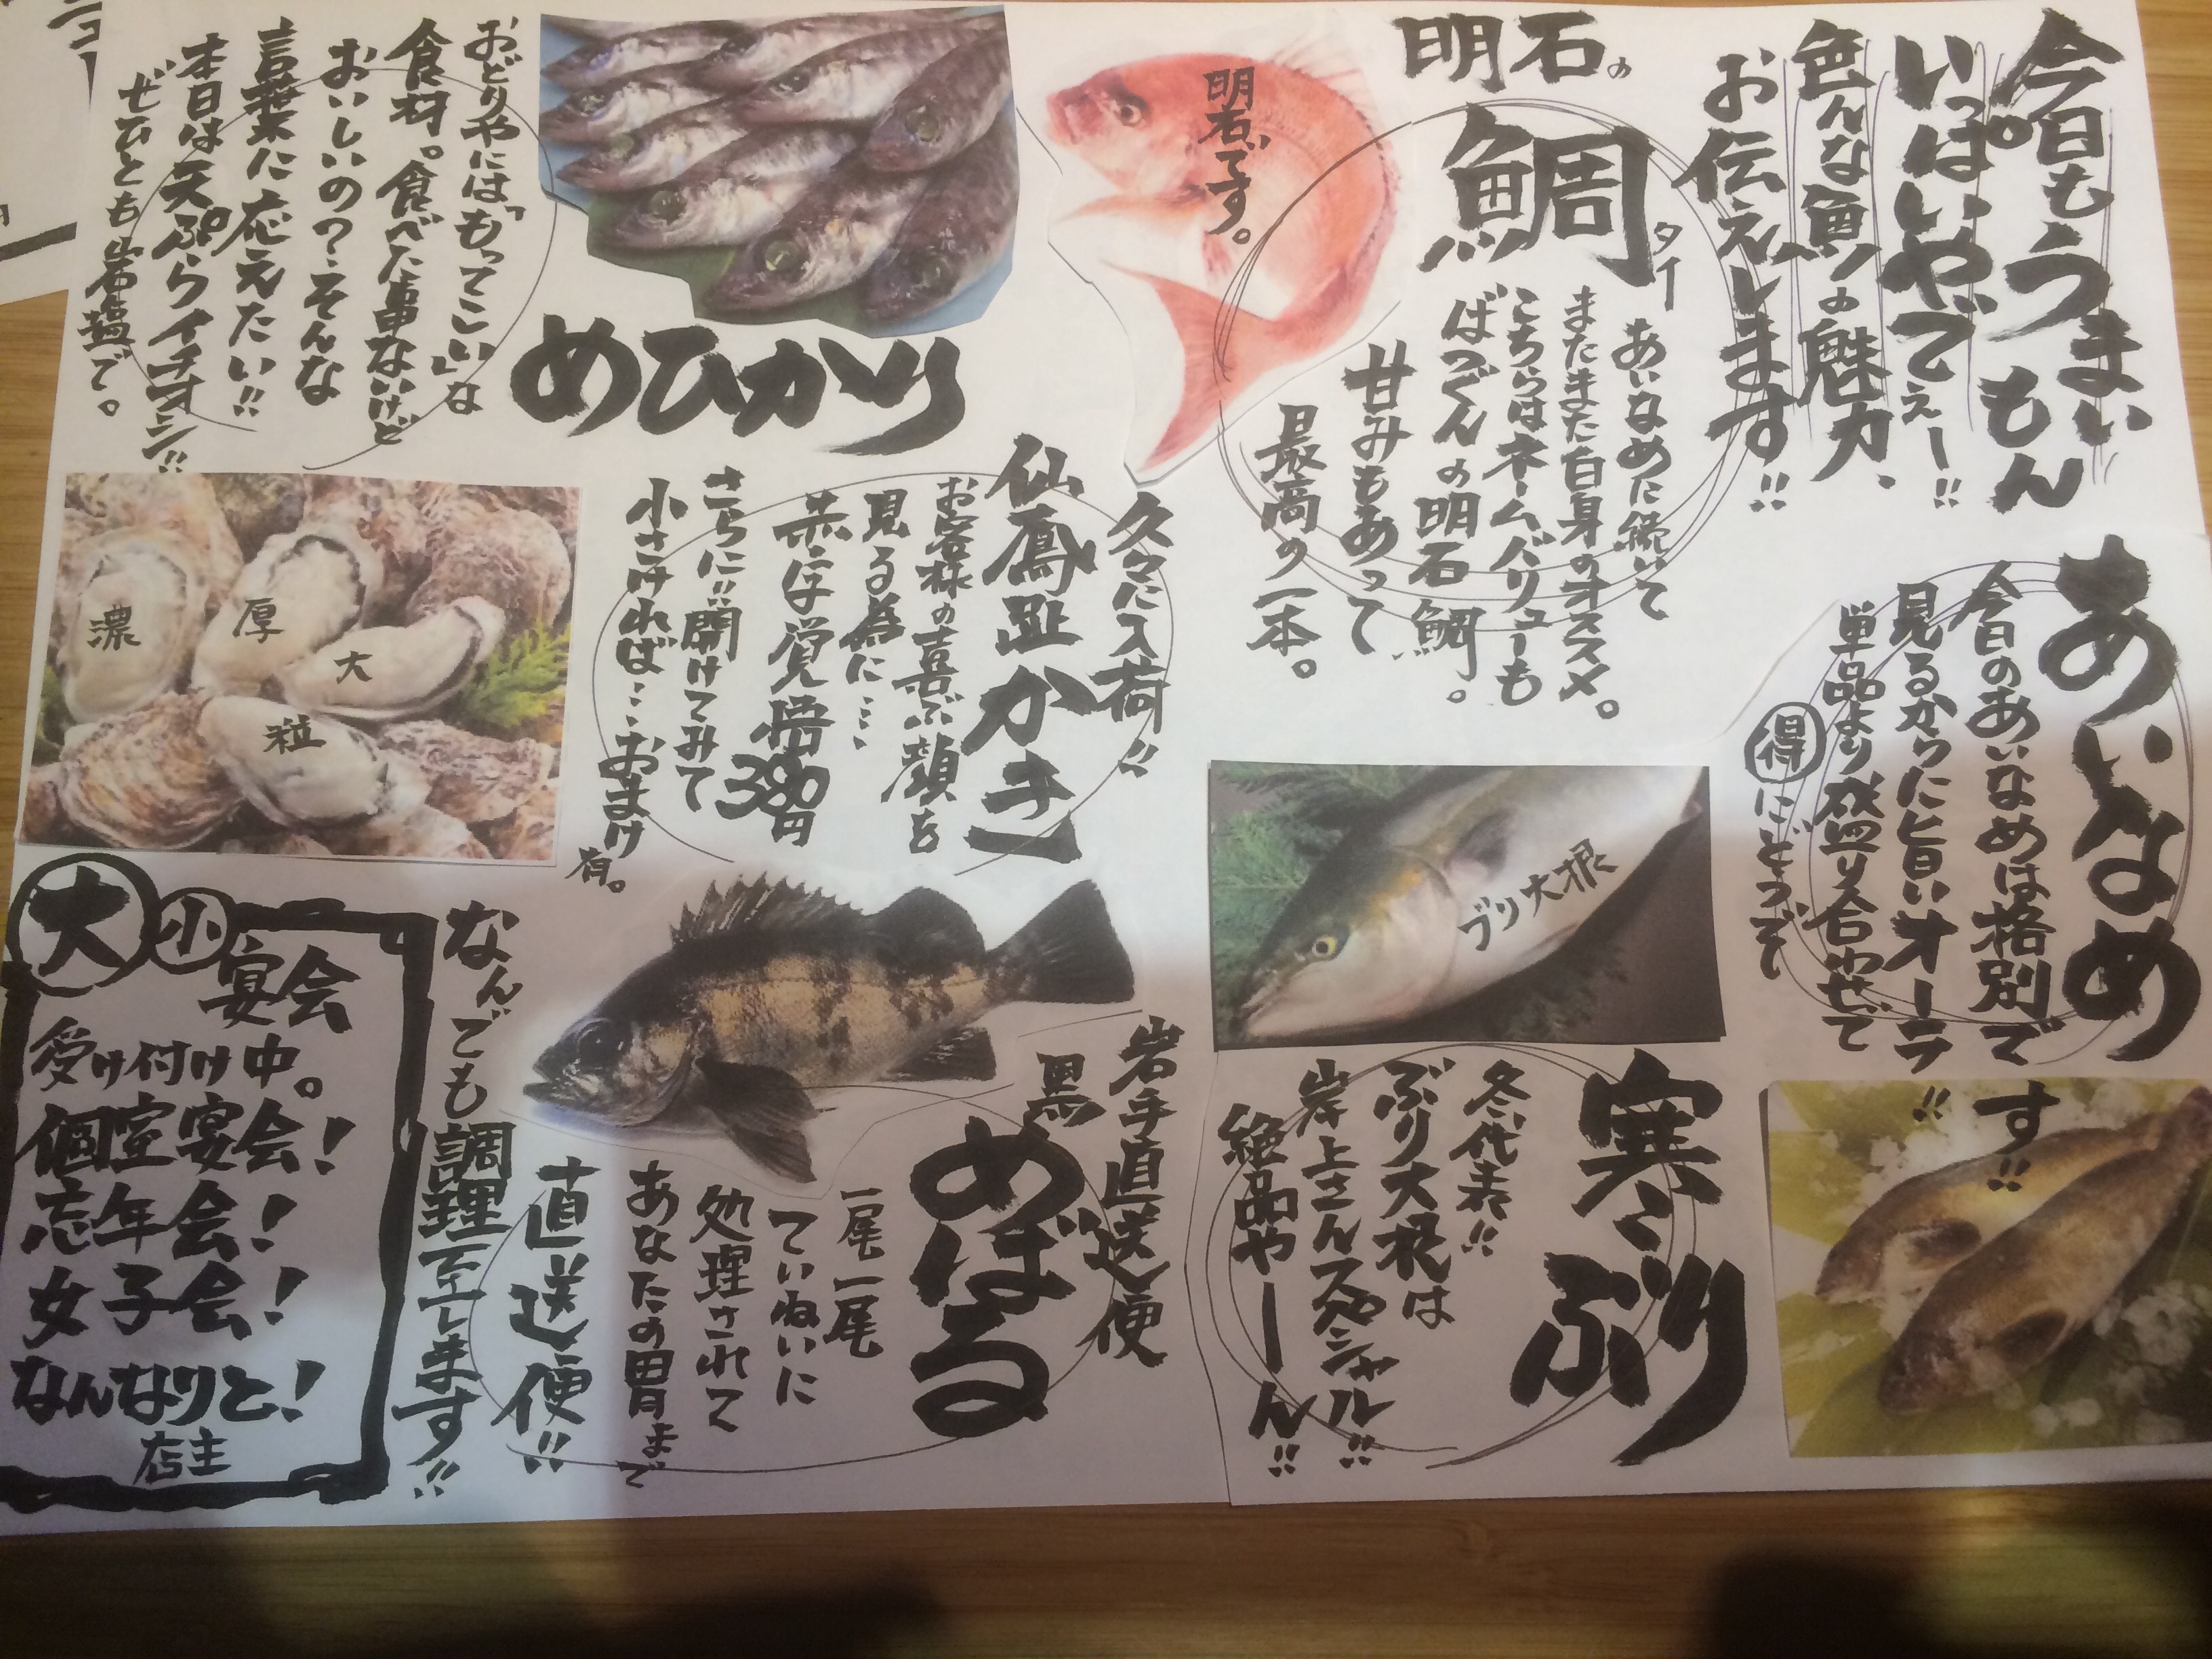 今日もうまいもん
いっぱいやでぇー!!
色んな魚の魅力、
お伝えします!!
あいなめ
今日のあいなめは格別です!!
見るからに旨いオーラ!!
単品より盛り合わせで
得にどうで
明石の
鯛
タイ
明石です。
あいなめに続いて
またまた白身のオススメ。
こちらはネームバリューも
ばつぐんの明石鯛。
甘みもあって
最高の一本。
寒ぶり
冬代表!!
ぶり大根は
岸上さんスペシャル!!
絶品やーん!!
ブリ大根
めひかり
おどりやには「もってこい」な
食材。食べた事ないけど
おいしいの?そんな
言葉に応えたい!!
本日は天ぷらイチオシ!!
ぜひとも岩塩で。
久々に入荷!!
仙鳳趾かき
お客様の喜ぶ顔を
見る為に…
赤字覚悟380円
さらに!!開けてみて
小さければ…おまけ有。
濃
厚
大
粒
岩手直送便
黒めばる
一尾一尾
ていねいに
処理されて
あなたの胃まで
直送便!!
なんでも調理致します!!
大小宴会
受け付け中。
個室宴会!
忘年会!
女子会!
なんなりと!
店主